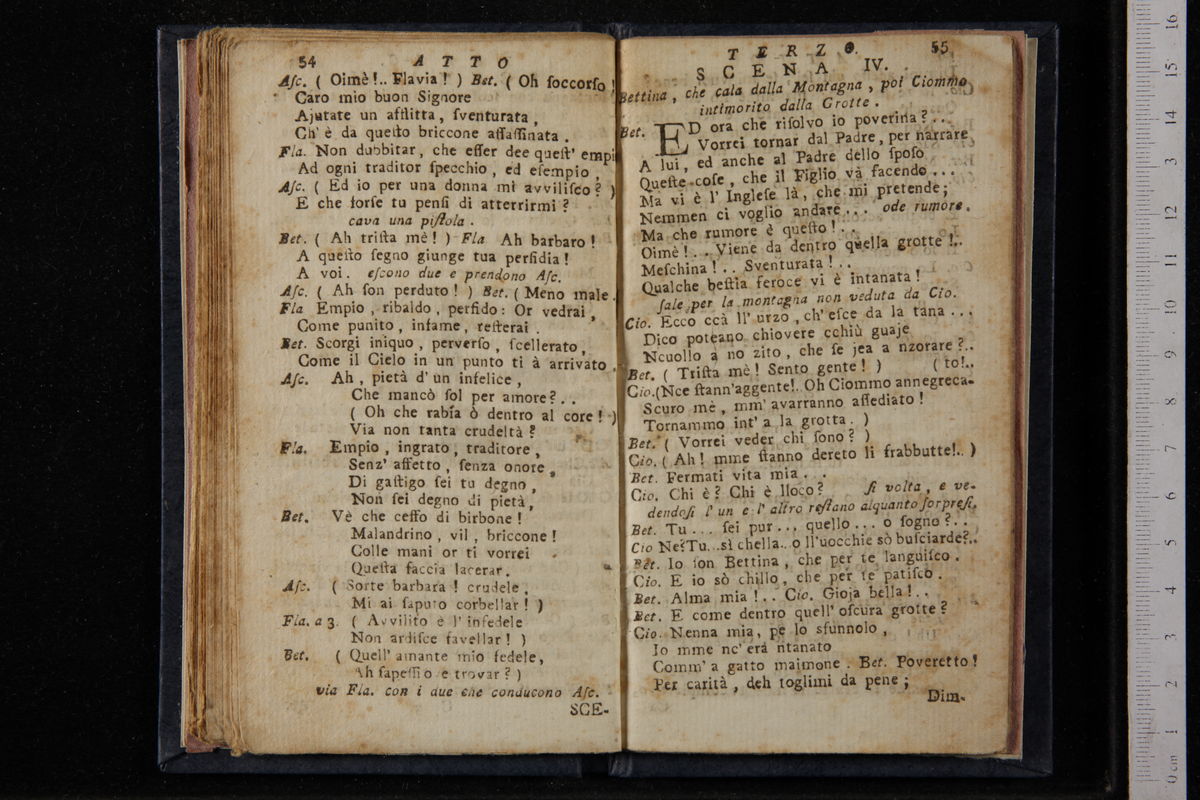 54 ATTO
Aſc. ( Oimè!.. Flavia! ) Bet. ( Oh ſoccorſo!
Caro mio buon Signore
Ajutate un afflitta, ſventurata,
Ch' è da queſto briccone aſſaſſinata.
Fla. Non dubbitar, che eſſer dee queſt' empi
Ad ogni traditor ſpecchio, ed eſempio.
Aſc. ( Ed io per una donna mi avviliſco? )
E che forſe tu penſi di atterrirmi?
cava una piſtola.
Bet. ( Ah triſta mè! ) Fla Ah barbaro!
A queſto ſegno giunge tua perfidia!
A voi. eſcono due e prendono Aſc.
Aſc. ( Ah ſon perduto! ) Bet. ( Meno male.
Fla Empio, ribaldo, perfido: Or vedrai,
Come punito, infame, reſterai.
Bet. Scorgi iniquo, perverſo, ſcellerato,
Come il Cielo in un punto ti à arrivato.
Aſc. Ah, pietà d' un infelice,
Che mancò ſol per amore?..
( Oh che rabſa ò dentro al core! )
Via non tanta crudeltà?
Fla. Empio, ingrato, traditore,
Senz' affetto, ſenza onore,
Di gaſtigo ſei tu degno,
Non ſei degno di pietà,
Bet. Vè che ceffo di birbone!
Malandrino, vil, briccone!
Colle mani or ti vorrei
Queſta faccia lacerar.
Aſc. ( Sorte barbara! crudele,
Mi ai ſaputo corbellar! )
Fla. a 3. ( Avvilito è l' infedele
Non ardiſce favellar! )
Bet. ( Quell' amante mio fedele,
Ah ſapeſſi o e trovar? )
via Fla. con i due che conducono Aſc.
SCE-
TERZO. 55
SCENA IV.
Bettina, che cala dalla Montagna, poi Ciommo
intimorito dalla Grotte.
Bet. ED ora che riſolvo io poverina?..
Vorrei tornar dal Padre, per narrare
A lui, ed anche al Padre dello ſpoſo
Queſte coſe, che il Figlio và facendo...
Ma vi è l' Ingleſe là, che mi pretende;
Nemmen ci voglio andare... ode rumore.
Ma che rumore è queſto!..
Oimè!.. Viene da dentro quella grotte!..
Meſchina!.. Sventurata!..
Qualche beſtia feroce vi è intanata!
ſale per la montagna non veduta da Cio.
Cio. Ecco ccà ll' urzo, ch' eſce da la tana...
Dico poteano chiovere cchiù guaje
Ncuollo a no zito, che ſe jea a nzorare?..
Bet. ( Triſta mè! Sento gente! ) ( to!..
Cio. (Nce ſtann'aggente!. Oh Ciommo annegreca-
Scuro mè, mm' avarranno aſſediato!
Tornammo int' a la grotta. )
Bet. ( Vorrei veder chi ſono? )
Cio. ( Ah! mme ſtanno dereto li frabbutte!.. )
Bet. Fermati vita mia...
Cio. Chi è? Chi è lloco? ſi volta, e ve-
dendoſi l' un e l' altro reſtano alquanto ſorpreſi.
Bet. Tu... ſei pur... quello... o ſogno?..
Cio Ne?Tu...sì chella..o ll'uocchie sò buſciarde?..
Bet. Io ſon Bettina, che per te languiſco.
Cio. E io sò chillo, che per te patiſco.
Bet. Alma mia!.. Cio. Gioja bella!..
Bet. E come dentro quell' oſcura grotte?
Cio. Nenna mia, pe lo sfunnolo,
Io mme nc' era ntanato
Comm' a gatto maimone. Bet. Poveretto!
Per carità, deh toglimi da pene;
Dim-
16
15
14
3
12
11
10
9
8
7
6
5
4
3
2
1
0 cm